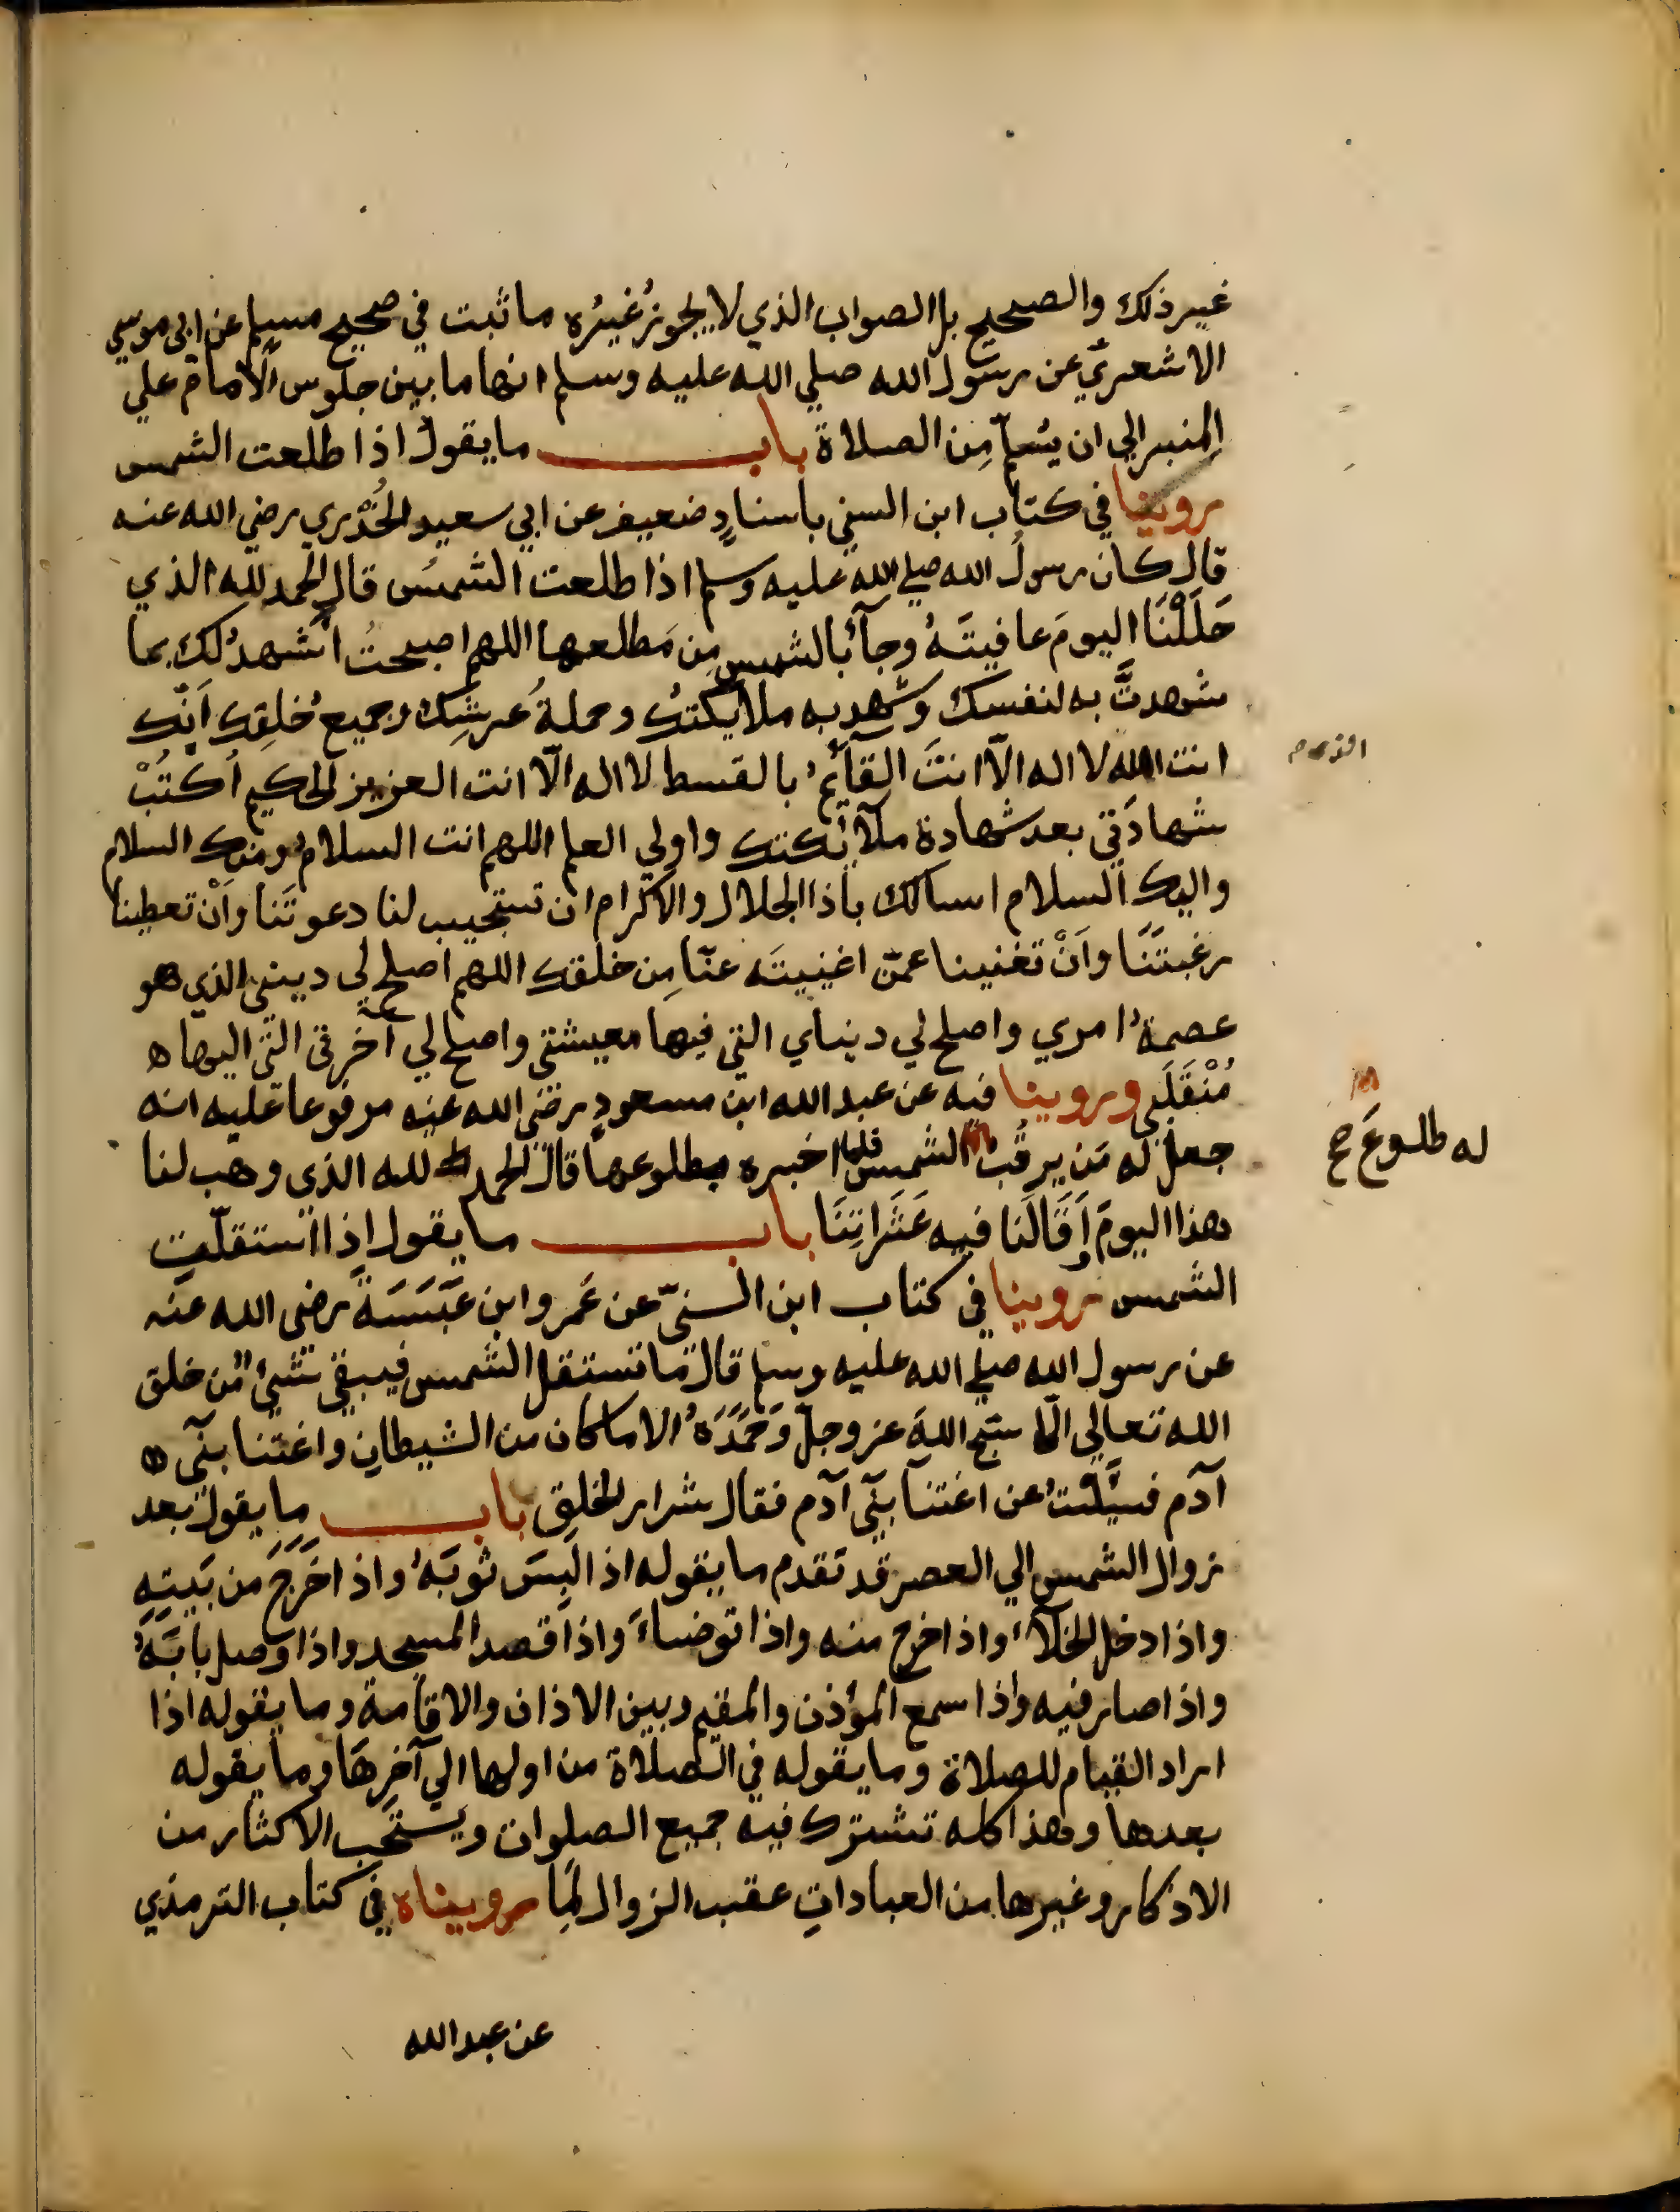 غير ذلك والصحيح بل الصواب الذي لا يجوز غيره ما ثبت في صحيح مسلم عن ابي موسي
الاشعري عن رسول الله صلي الله عليه وسلم انها ما بين جلوس الامام علي
المنبر الي ان يسلم من الصلاة باب ما يقول اذا طلعت الشمس
روينا في كتاب ابن السني باسناد ضعيف عن ابي سعيد الخدري رضي الله عنه
قال كان رسول الله صلي الله عليه وسلم اذا طلعت الشمس قال الحمد لله الذي
حَلَلْنَا اليومَ عافيتَهُ وجآءَ بالشمس مِن مَطلعها اللهم اصبحتُ اَشهدُ لك بما
شهدتَّ به لنفسك وشهد به ملائكتك وحملةُ عرشِك وجميعُ خلقِك اَنّك
انت الله لا اله الّا انتَ القآئمُ بالقسط لا اله الّا انت العزيز الحكيم اُكتُبْ
شهادَتي بعد شهادة ملآئكتك واولي العلم اللهم انت السلام ومنك السلام
واليك السلام اسالك ياذا الجلال والاكرام ان تستجيب لنا دعوتَنا واَنْ تعطينا
رغبتَنَا واَنْ تغنينا عمّن اغنيتَه عنّا مِن خلقك اللهم اصلح لي ديني الذي هو
عصمةُ امري واصلح لي دنياي التي فيها معيشتي واصلح لي آخرتي التي اليها ه
مُنْقَلَبي وروينا فيه عن عبد الله ابن مسعودٍ رضي الله عنه مرفوعا عليه انه
جعل له مَن يرقُب الشمس فلما اخبره بطلوعها قال الحمد لله الذي وهب لنا
له طلوعَ صح
هذا اليومَ اَقَالَنا فيه عَثَراتِنَا باب ما يقول اذا استقلّت
الشمس روينا في كتاب ابن السنيّ عن عَمرو ابن عَبَسَةَ رضى الله عنه
عن رسول الله صلي الله عليه وسلم قال ما تستقل الشمس فيبقي شيئ من خلق
الله تعالي الّا سبّح اللهَ عز وجلّ وَحَمِدَهُ الا ما كان من الشيطان واغتنا بني ه
آدم فسئلتُ عن اغتنآ بنيآ آدم فقال شرار الخلق باب ما يقول بعد
زوال الشمس الي العصر قد تقدم ما يقوله اذا لَبِسَ ثوبَهُ واذا خَرَجَ من بَيتِهِ
واذا دخل الخلآء واذا خرج منه واذا توضاءَ واذا قصد المسجد واذا وصل بابَهُ
واذا صار فيه واذا سمع المؤذن والمقيم وبين الاذان والاقامة وما يقوله اذا
اراد القيام للصلاة وما يقوله في الصلاة من اولها الي آخِرِهَا وما يقوله
بعدها وهذا كله تشترك فيه جميع الصلوات ويستحب الاكثار من
الاذكار وغيرها من العباداتِ عقب الزوال لِمَا رويناه في كتاب الترمذي
عن عبد الله